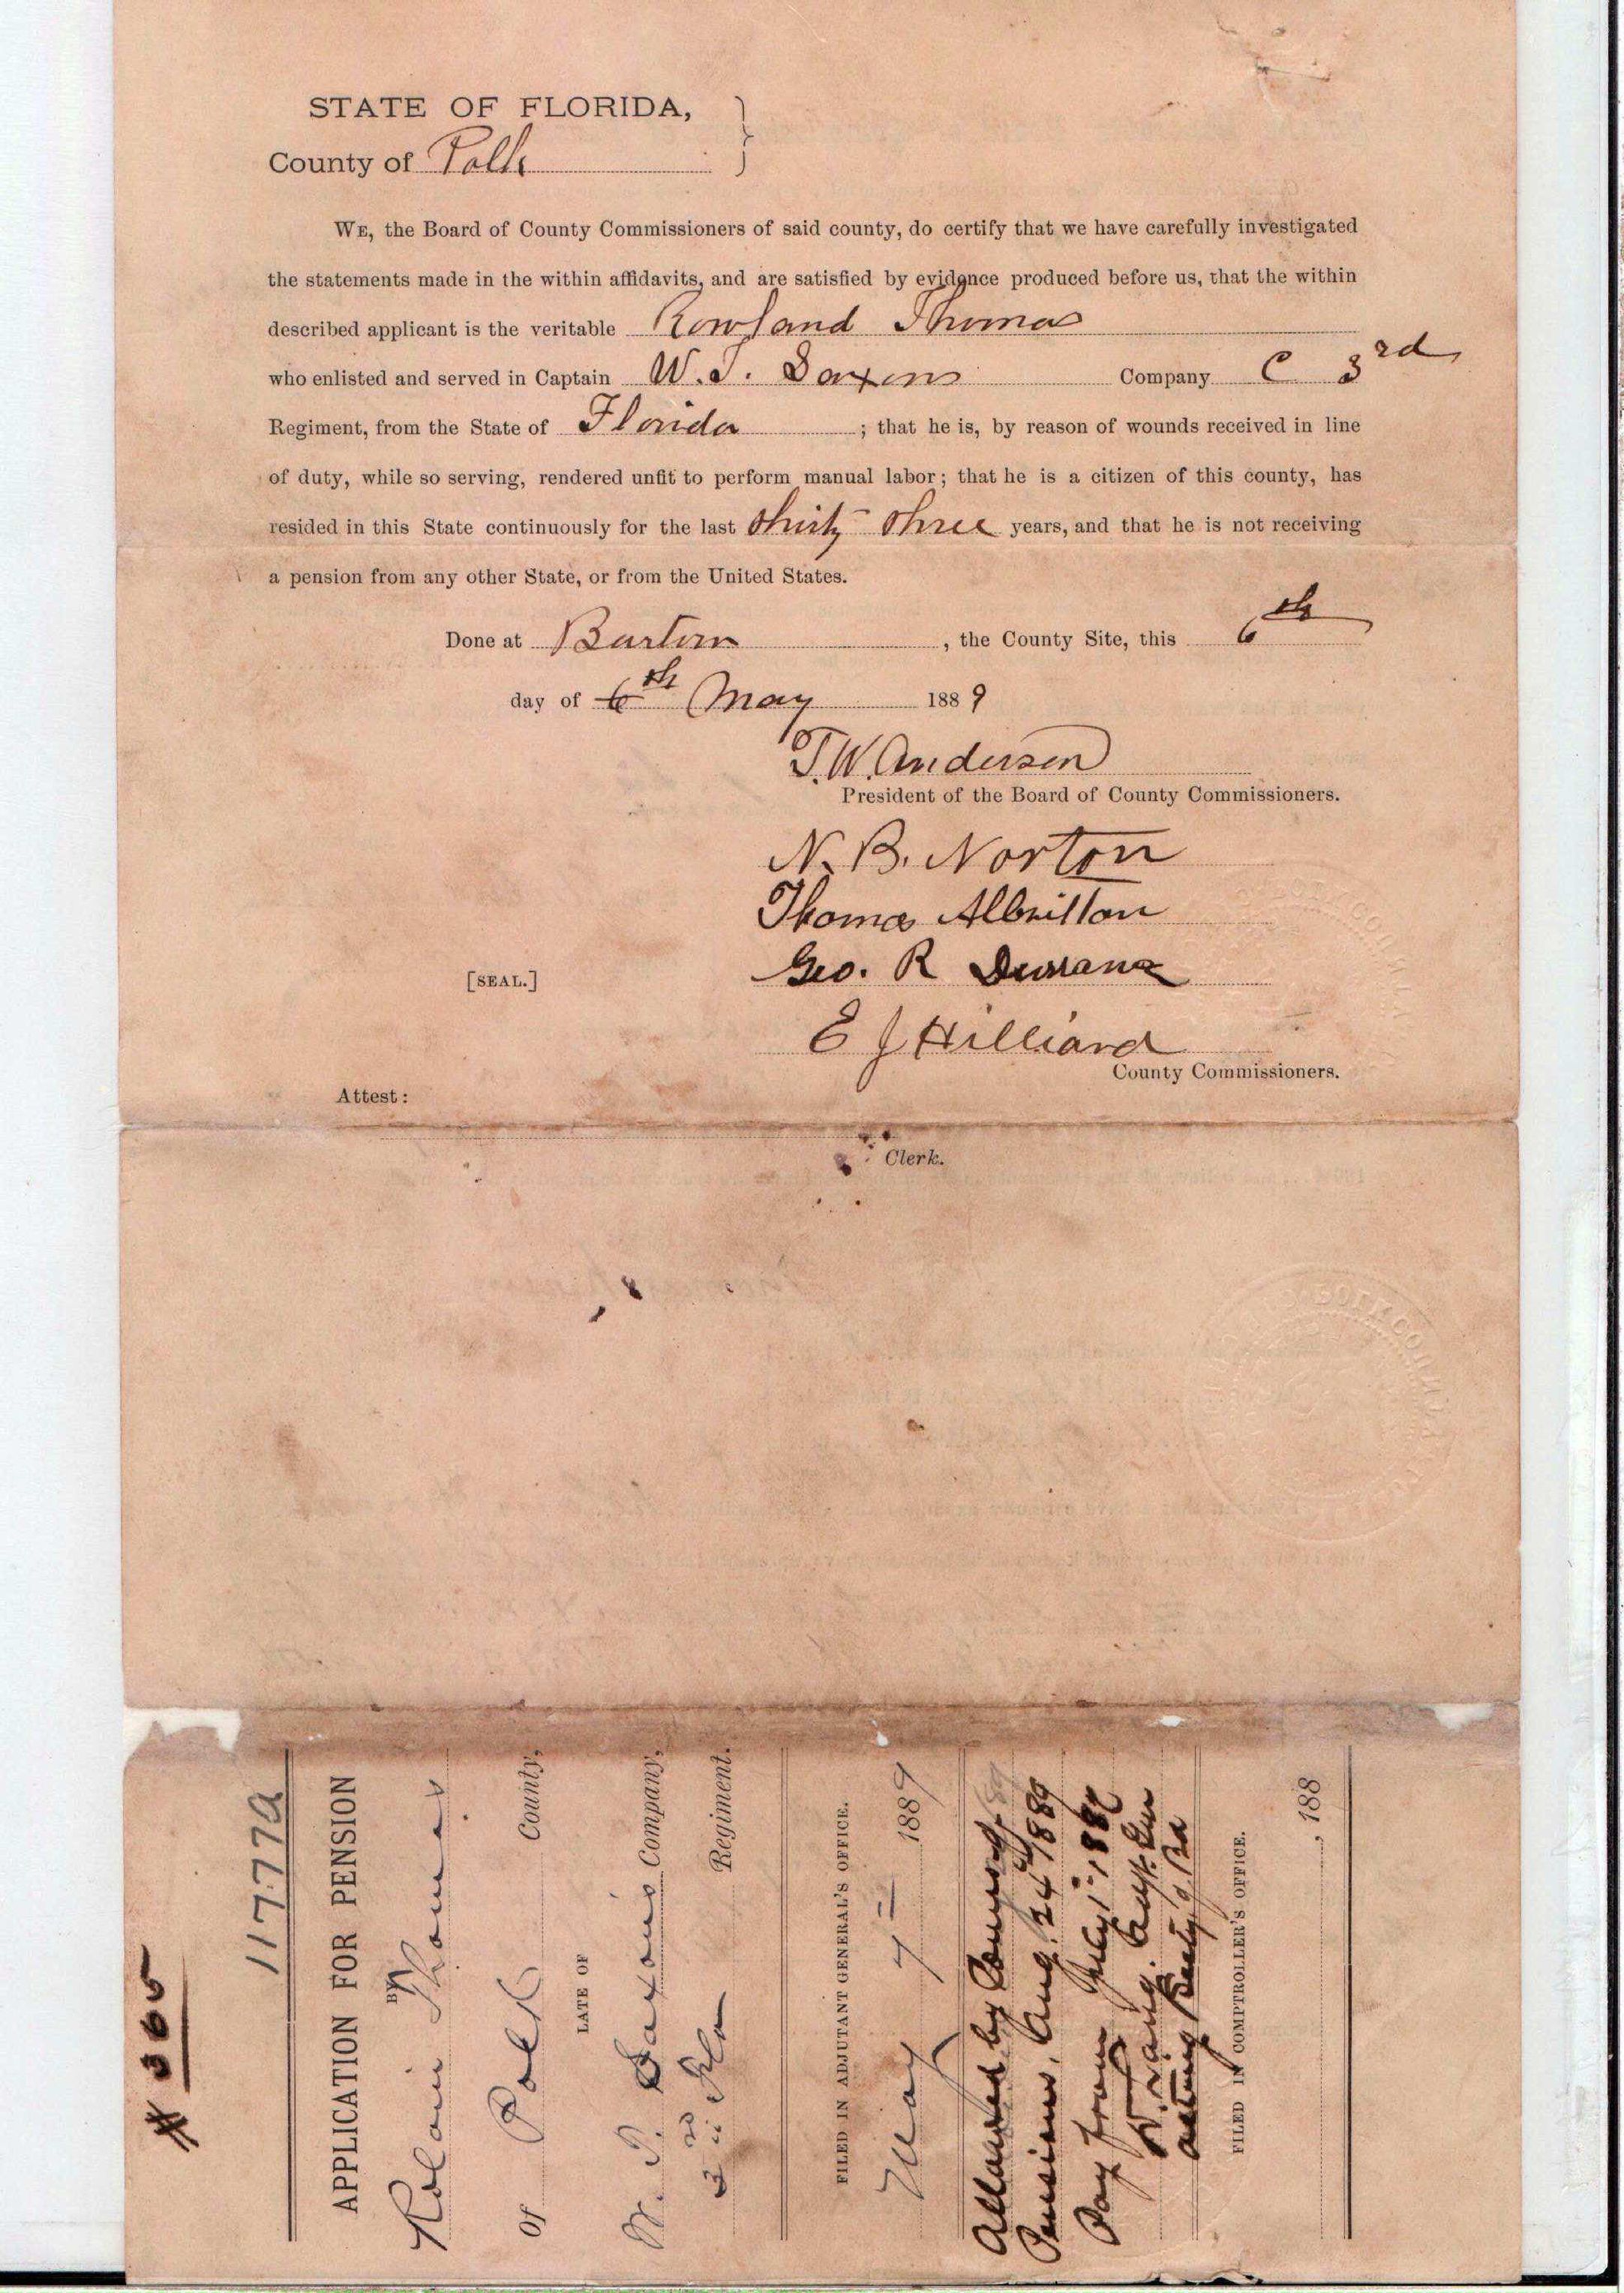 STATE OF FLORIDA,
County of Polk
WE, the Board of County Commissioners of said county, do certify that we have carefully investigated
the statements made in the within affidavits, and are satisfied by evidence produced before us, that the within
described applicant is the veritable Rowland Thomas
who enlisted and served in Captain W. T. Saxons Company C 3rd
Regiment, from the State of Florida ; that he is, by reason of wounds received in line
of duty, while so serving, rendered unfit to perform manual labor; that he is a citizen of this county, has
resided in this State continuously for the last thirty three years, and that he is not receiving
a pension from any other State, or from the United States.
Done at Bartow , the County Site, this 6th
day of 6th May 1889
T. W. Anderson
President of the Board of County Commissioners.
N. B. Norton
Thomas Albritton
Geo. R Durrance
E J Hilliard
County Commissioners.
[SEAL.]
Attest:
Clerk.
# 365
11777a
APPLICATION FOR PENSION
BY
Rolain Thomas
Of Polk County,
LATE OF
W. T. Saxons Company,
3rd Fla Regiment.
FILED IN ADJUTANT GENERAL'S OFFICE.
May 7 1889
Allowed by Board of
Pensions, Aug. 24 1889
Pay from July 1, 188
D. Lang. Adjt. Gen
acting Secty. of Bd
FILED IN COMPTROLLER'S OFFICE.
, 188